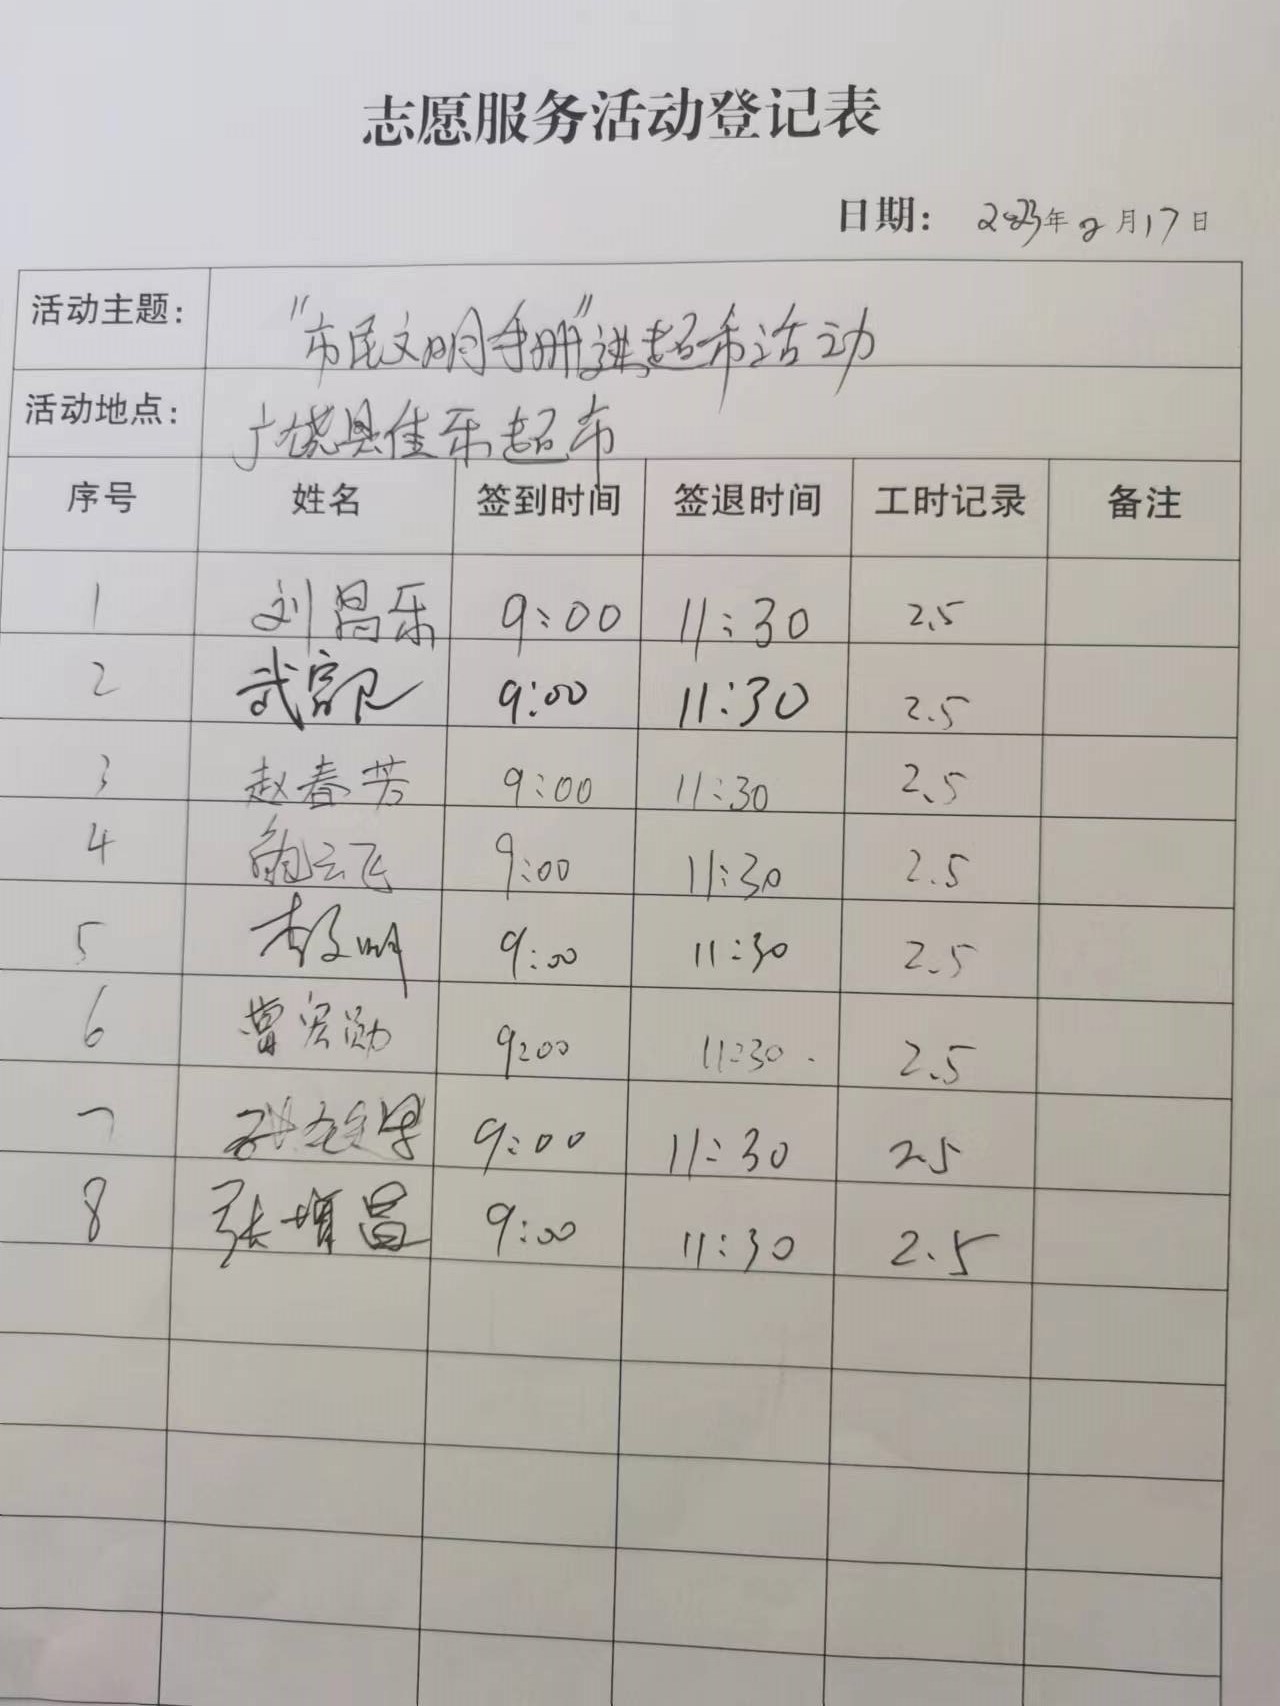 志愿服务活动登记表
日期： 2023年2月17日
活动主题： "市民文明手册"进超市活动
活动地点： 广饶县佳乐超市
序号 姓名 签到时间 签退时间 工时记录 备注
1 刘昌乐 9:00 11:30 2.5
2 武 9:00 11:30 2.5
3 赵春芳 9:00 11:30 2.5
4 云飞 9:00 11:30 2.5
5 9:00 11:30 2.5
6 曹宏勋 9:00 11:30 2.5
7 9:00 11:30 2.5
8 张增昌 9:00 11:30 2.5